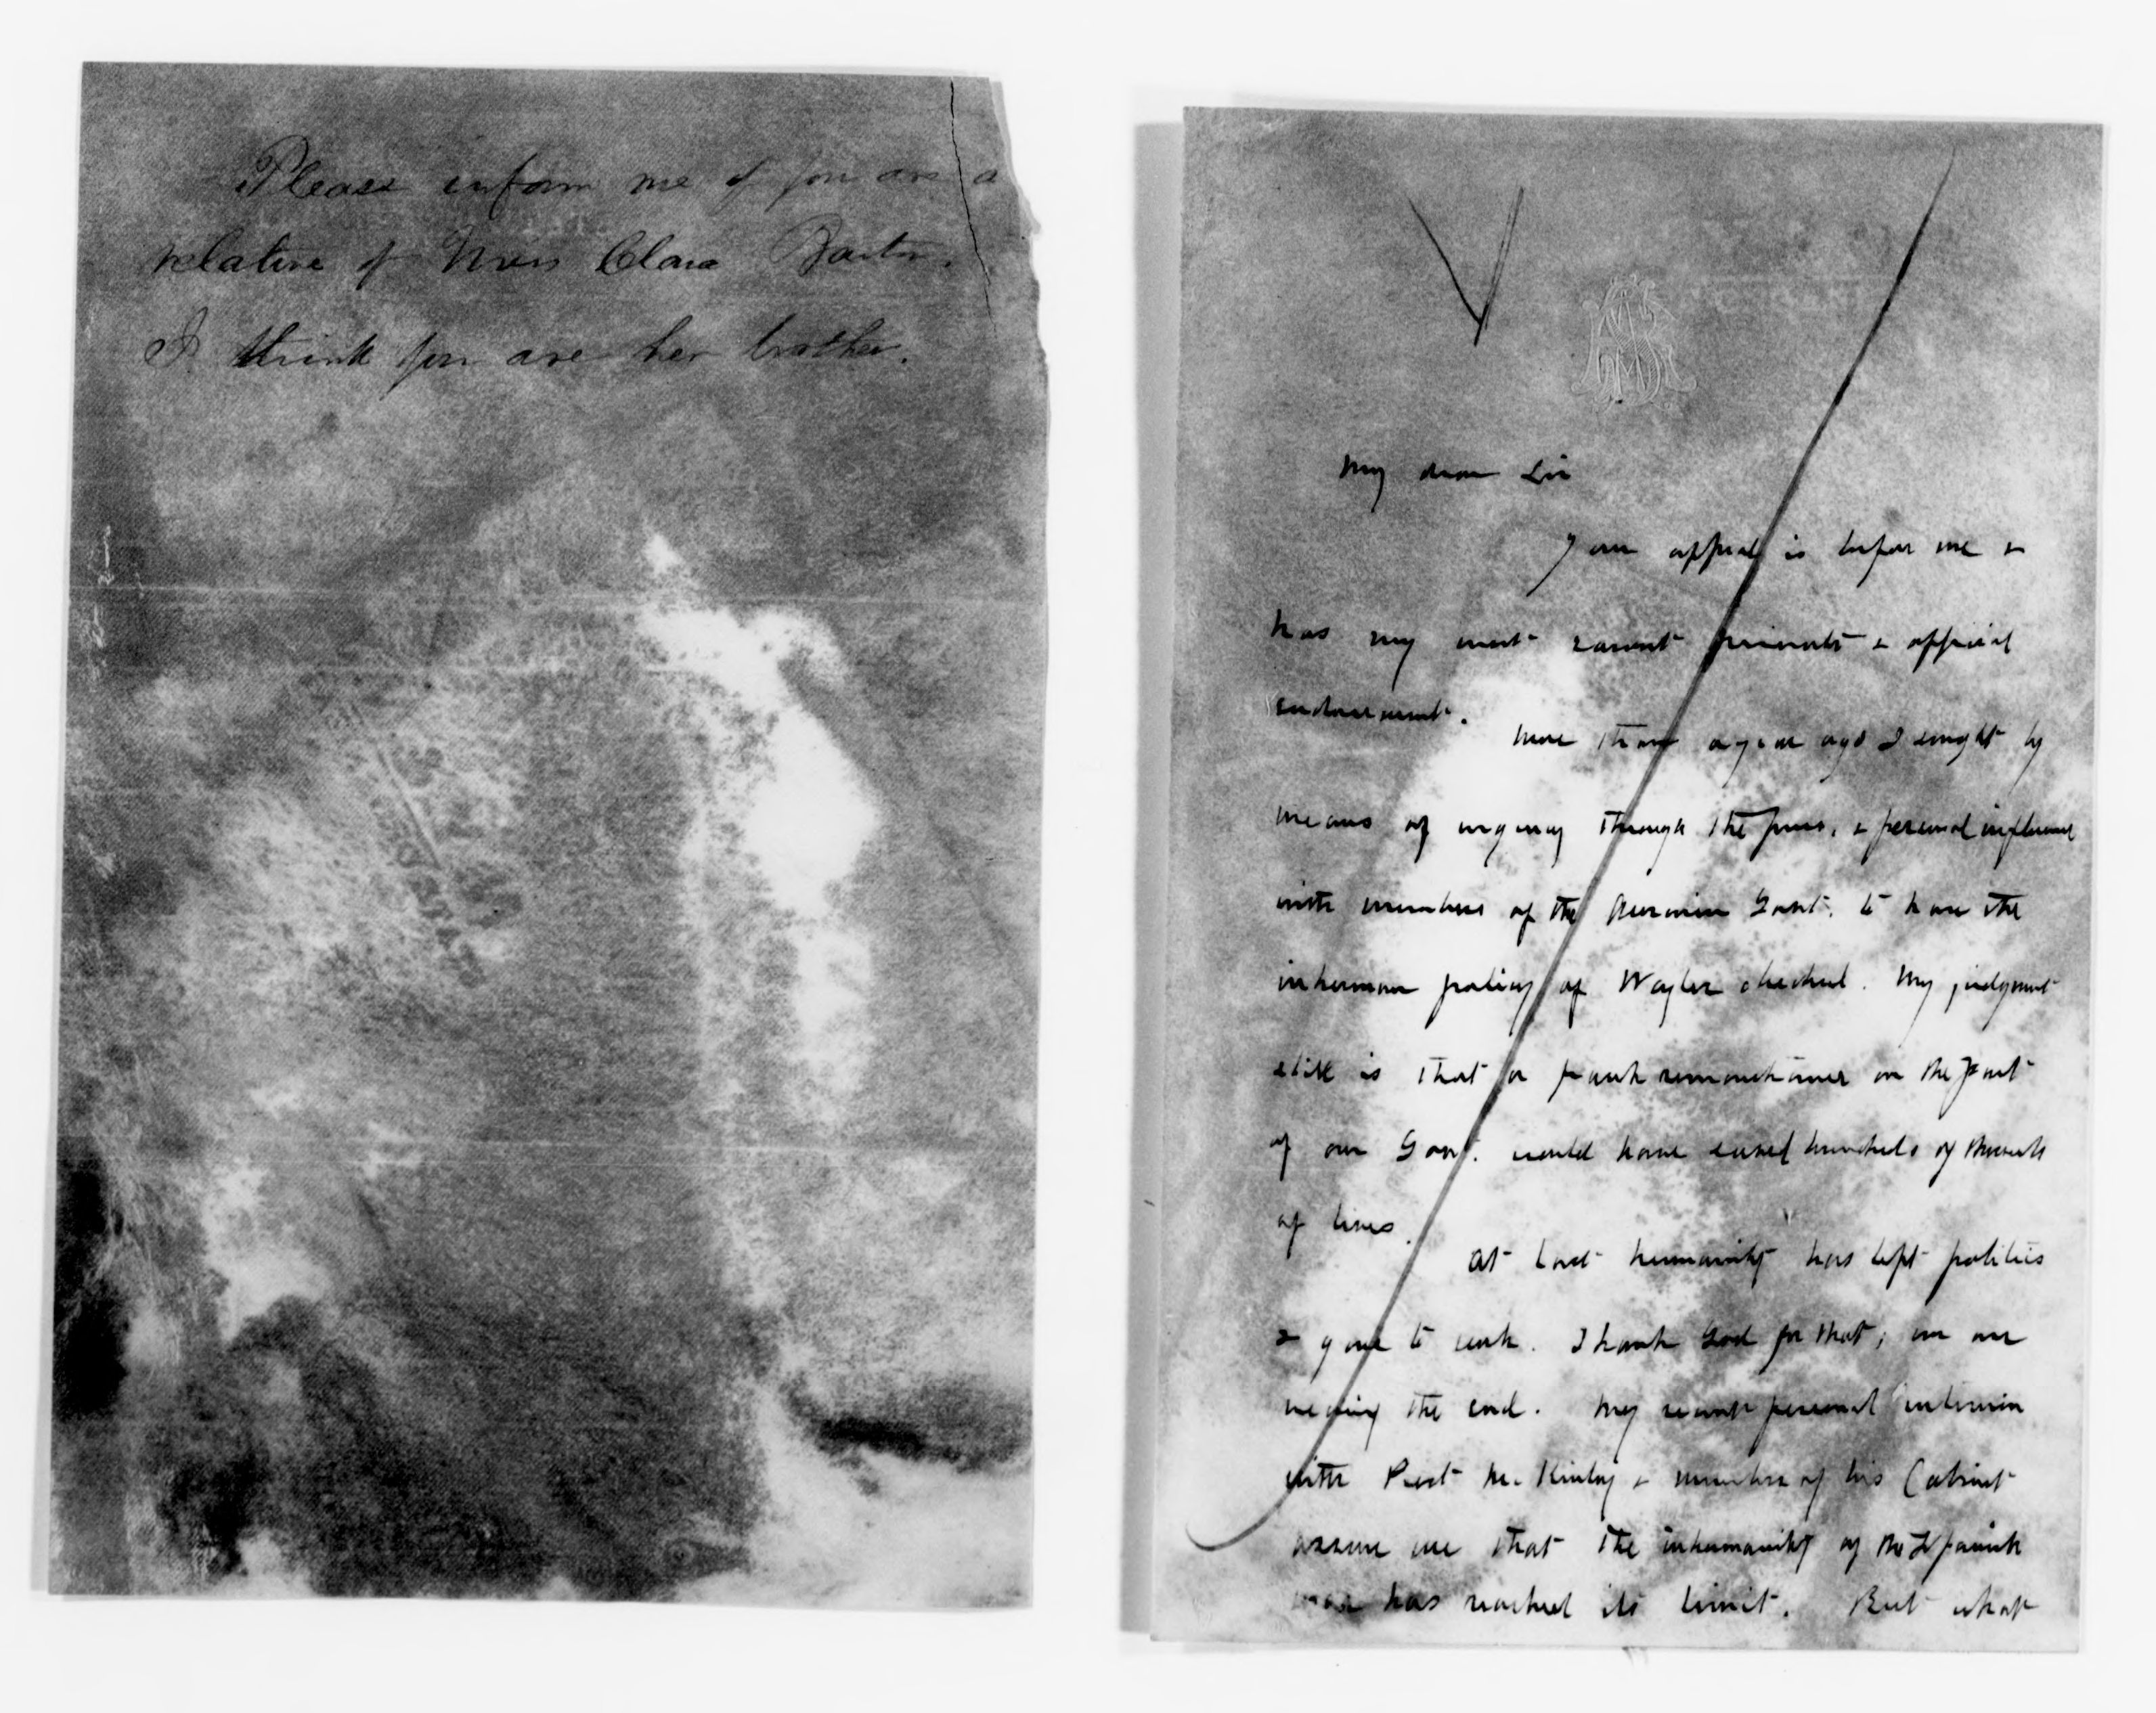 Please inform me if you are a
relative of Miss Clara Barton.
I think you are her brother.
My dear Sir
Your appeal is before me &
has my most earnest private & official
endorsement.
More than a year ago I sought by
means of urgency through the press, & personal influence
with members of the American Govt. to have the
inhuman policy of Weyler checked. My judgment
still is that a frank remonstrance on the part
of our Govt. would have saved hundreds of thousands
of lives.
At last humanity has left politics
& gone to work. Thank God for that; we are
nearing the end. My recent personal interview
with Prest McKinley & members of his Cabinet
assure me that the inhumanity of the Spanish
has reached its limit. But what